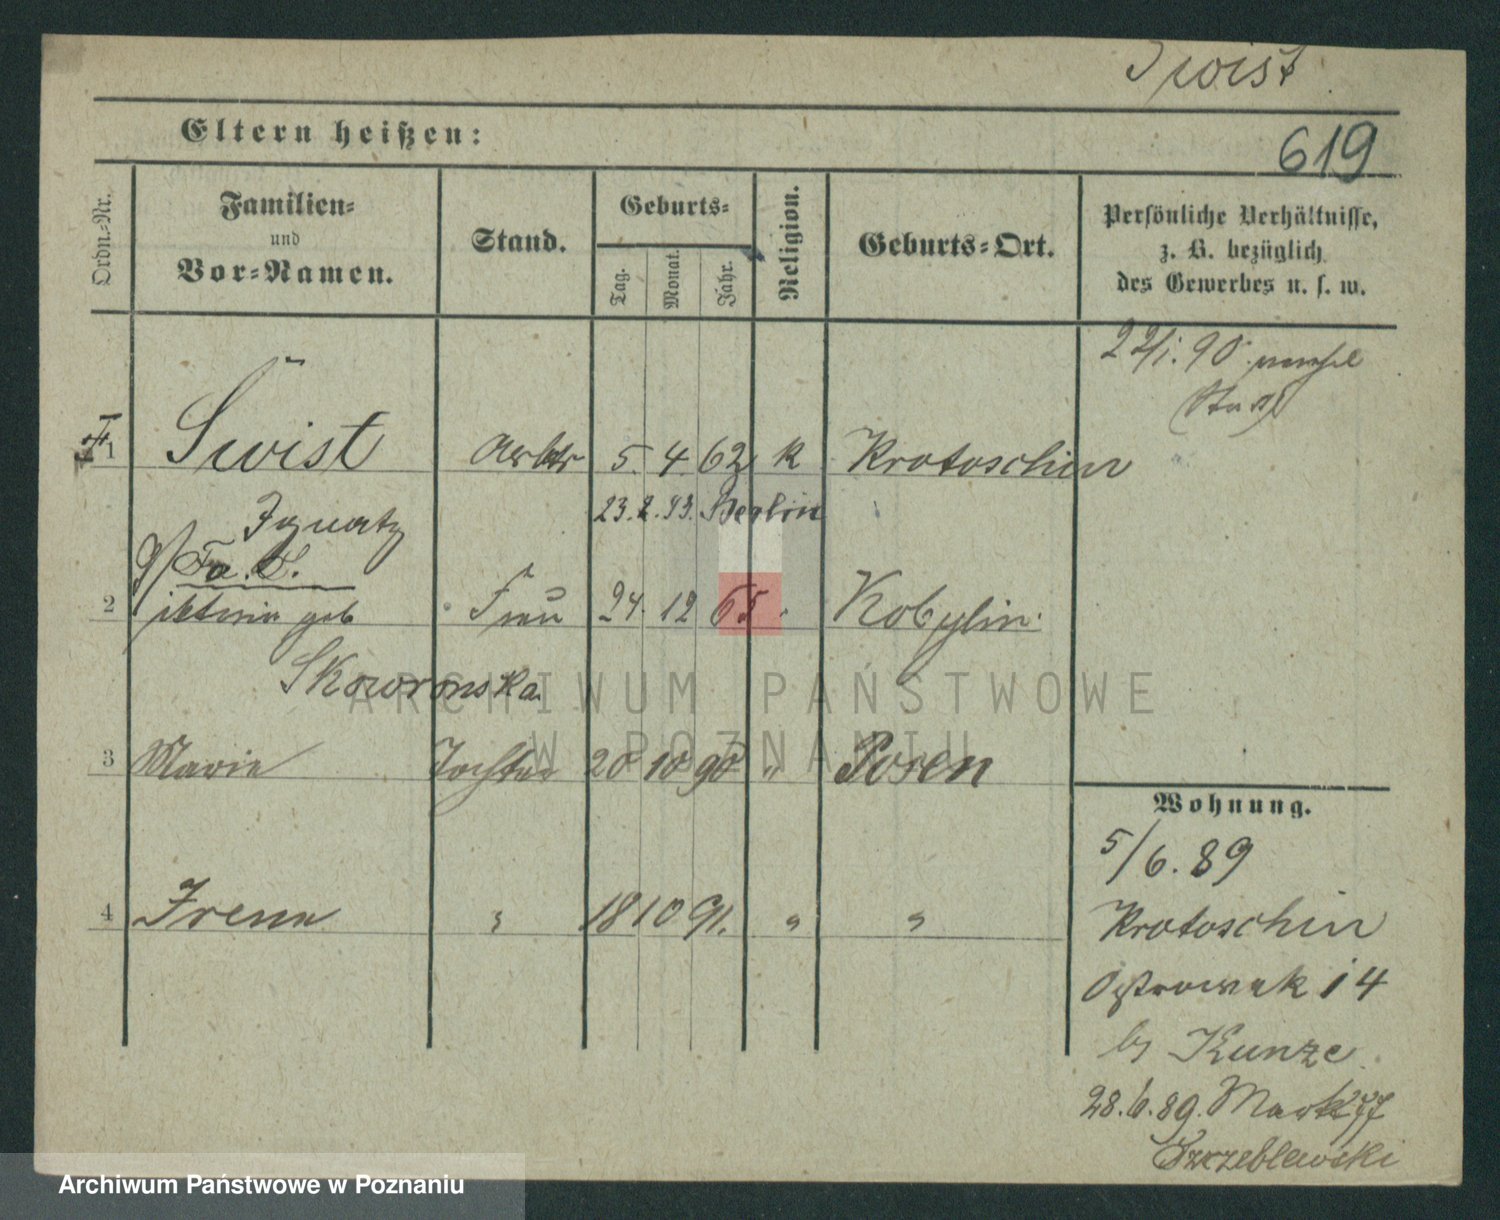 Świst
Eltern heißen:
619
Ordn.-Nr.
Familien-
und
Vor-Namen.
Stand.
Geburts-
Tag.
Monat.
Jahr.
Religion.
Geburts-Ort.
Persönliche Verhältnisse,
z. B. bezüglich
des Gewerbes u. s. w.
1 Świst Arbtr 5. 4 62 k Krotoschin
Ignatz 23.2.93. Berlin
2 geb Frau 24. 12 65 " Kobylin.
Skowronska
3 Marie Tochter 20 10 90 " Posen
4 Irena " 18 10 91. " "
Wohnung.
5/6. 89
Krotoschin
14
by Kunze
28.6.89. Markt 77
Szczeblewski
ARCHIWUM PAŃSTWOWE
W POZNANIU
Archiwum Państwowe w Poznaniu